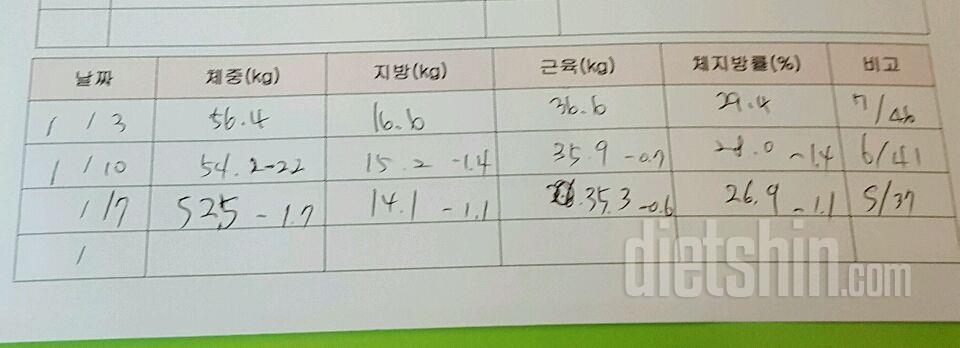 날짜 체중(kg) 지방(kg) 근육(kg) 체지방률(%) 비고
1 / 3 56.4 16.6 36.6 29.4 7/46
1 / 10 54.2 -2.2 15.2 -1.4 35.9 -0.7 28.0 -1.4 6/41
1 /7 52.5 -1.7 14.1 -1.1 35.3 -0.6 26.9 -1.1 5/37
/
dietshin.com